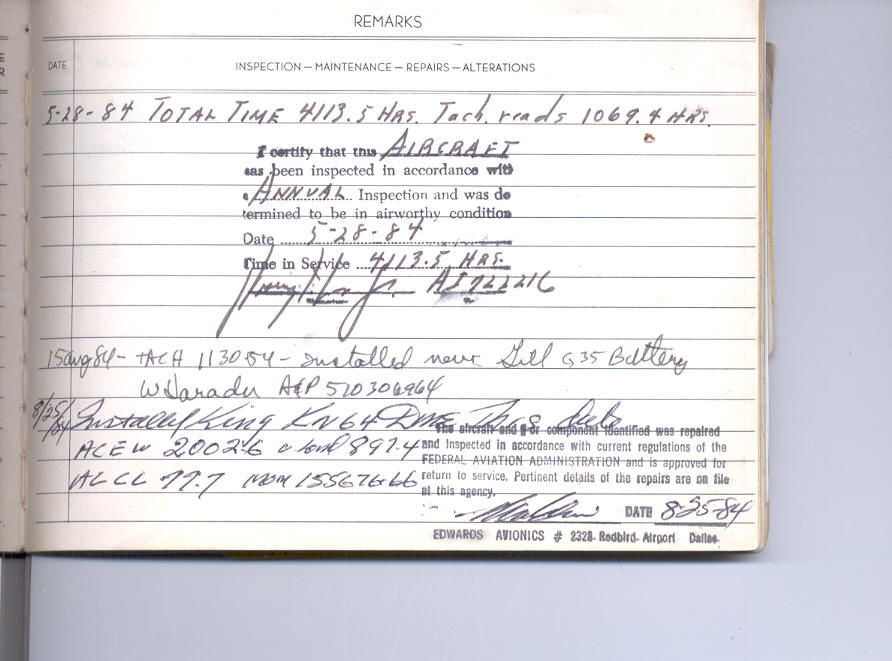 REMARKS
DATE
INSPECTION — MAINTENANCE — REPAIRS — ALTERATIONS
5-28-84 TOTAL TIME 4113.5 HRS. Tach. reads 1069.4 HRS.
I certify that this AIRCRAFT
has been inspected in accordance with
a ANNUAL Inspection and was de
termined to be in airworthy condition
Date 5-28-84
Time in Service 4113.5 HRS.
15 Aug 84 - TACH 1130.54 - Installed new Gill G35 Battery
A&P 510306964
8/25/84 Installed King KN64 DME This date
The aircraft and or component identified was repaired
ACEW 2002.6
and inspected in accordance with current regulations of the
FEDERAL AVIATION ADMINISTRATION and is approved for
77.7 mom 155676.66
return to service. Pertinent details of the repairs are on file
at this agency.
DATE 8-25-84
EDWARDS AVIONICS # 2328- Redbird- Airport Dallas